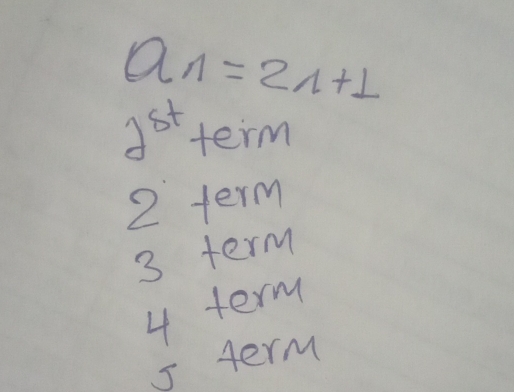 an = 2n+1
1st term
2 term
3 term
4 term
5 term